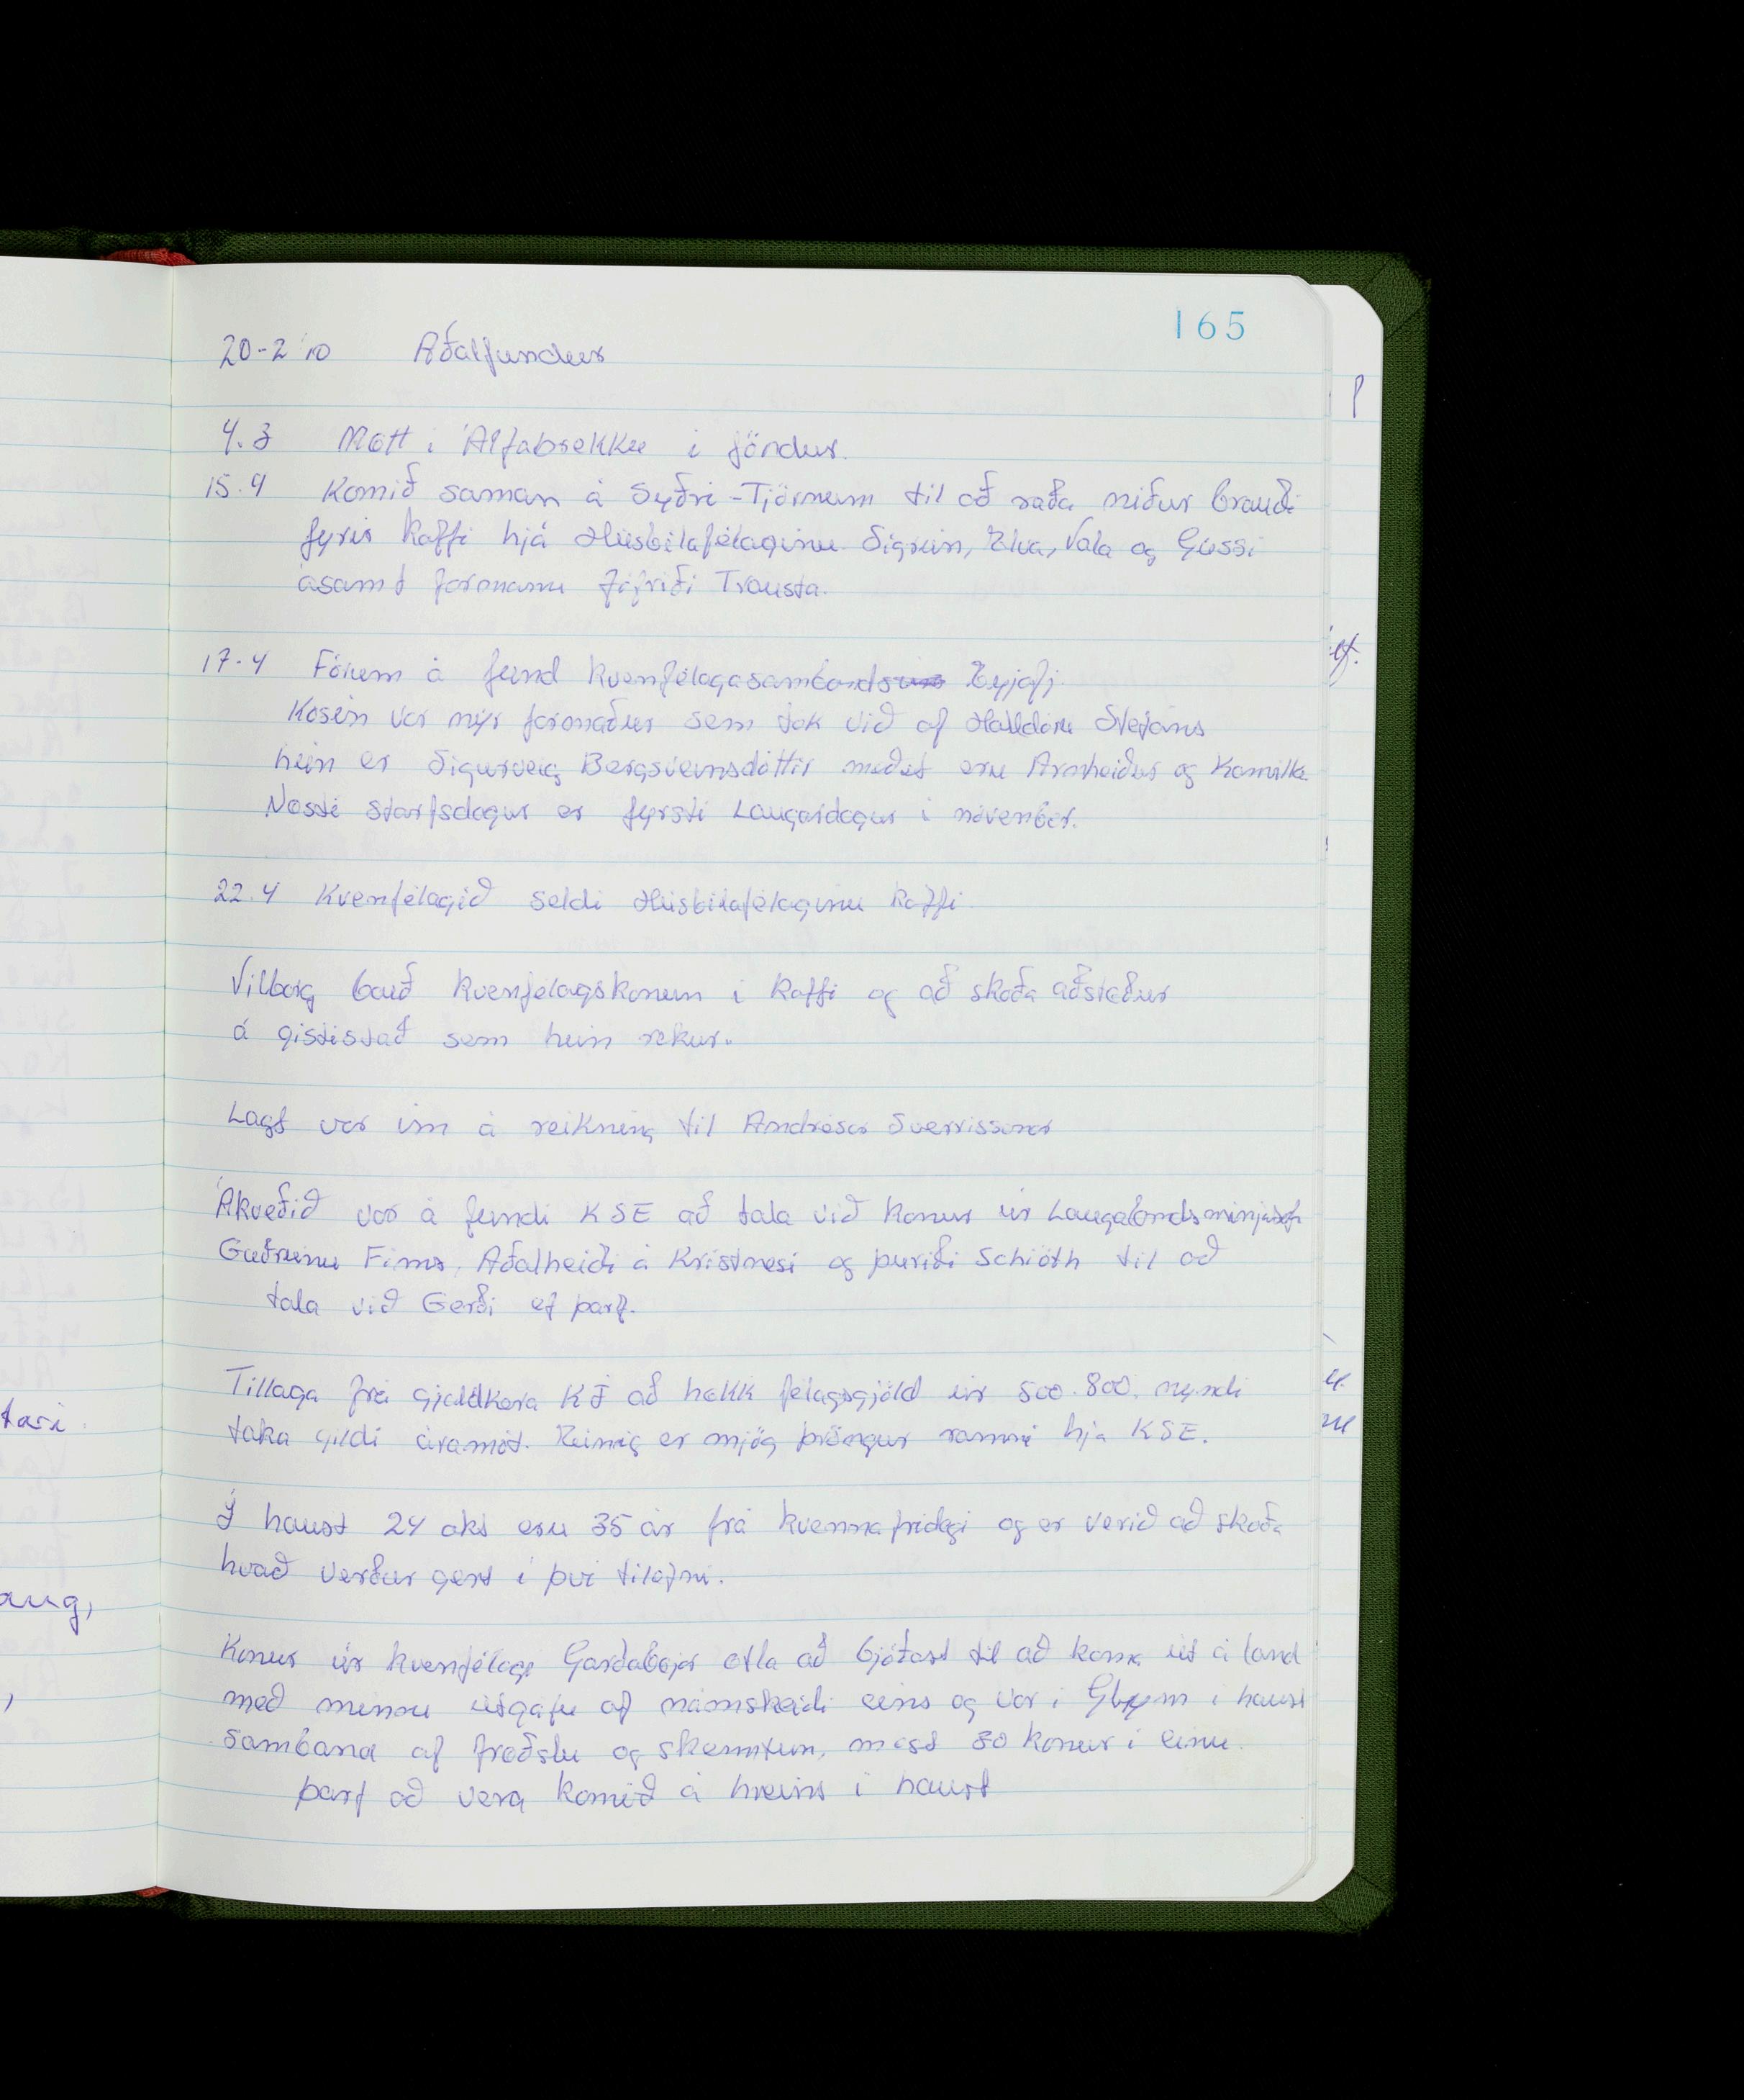 165
20-2 '10 Aðalfundur
4.3 Mætt i Álfabrekku i föndur.
15.4 Komið saman á Syðri-Tjörnum til að raða niður brauði
fyrir kaffi hjá Húsbilafélaginu. Sigrún, Elva, Vala og Gussi
ásamt formanni Jófriði Trausta.
17.4 Fórum á fund kvenfélagasambandsins Eyjafj.
Kosin var nýr formaður sem tók við af Halldóru Stefáns
hún er Sigurveig Bergsveinsdóttir með eru Arnheiður og Kamilla
Næsti starfsdagur er fyrsti Laugardagur i nóvember.
22.4 Kvenfélagið seldi Húsbilafélaginu kaffi
Vilborg bauð kvenfélagskonum i kaffi og að skoða aðstæður
á gististað sem hún rekur.
Lagt var inn á reikning til Andrésar Sverrissonar
Ákveðið var á fundi KSE að tala við konur úr
Guðrúnu Finns, Aðalheiði á Kristnesi og þuriði Schiöth til að
tala við Gerði ef þarf.
Tillaga frá gjaldkera KJ að hækk félagsgjöld úr 500. 800. myndi
taka gildi áramót. Einnig er mjög þröngur rammi hjá KSE.
Í haust 24 okt eru 35 ár frá kvennafridegi og er verið að skoða
hvað verður gert i þvi tilefni.
Konur úr kvenfélagi Garðabæjar ætla að bjóðast til að koma út á land
með minni útgáfu af námskeiði eins og var i Glym i haust
Samband af fræðslu og skemmtun, mest 30 konur i einu.
þarf að vera komið á hreint i haust
tari
aug,